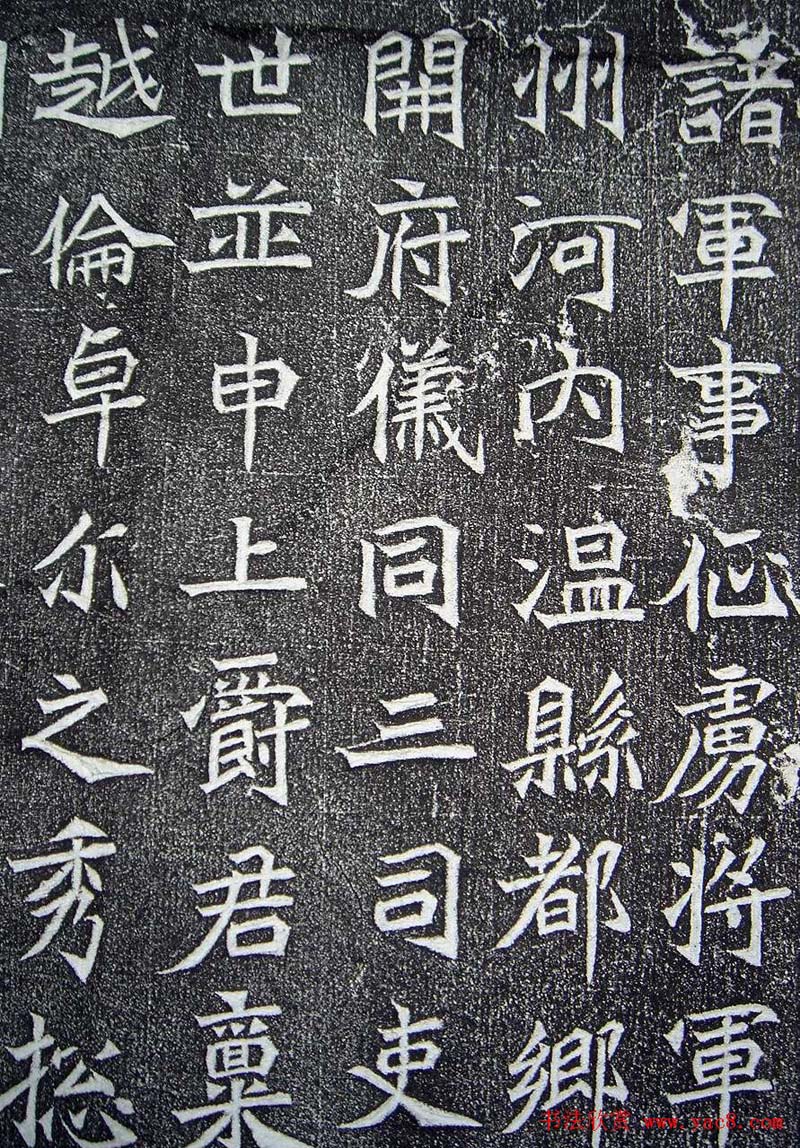 諸軍事征虜將軍
州河内温縣都鄉
開府儀同三司吏
世並申上爵君稟
越倫卓尓之秀捴
书法欣赏 www.yac8.com